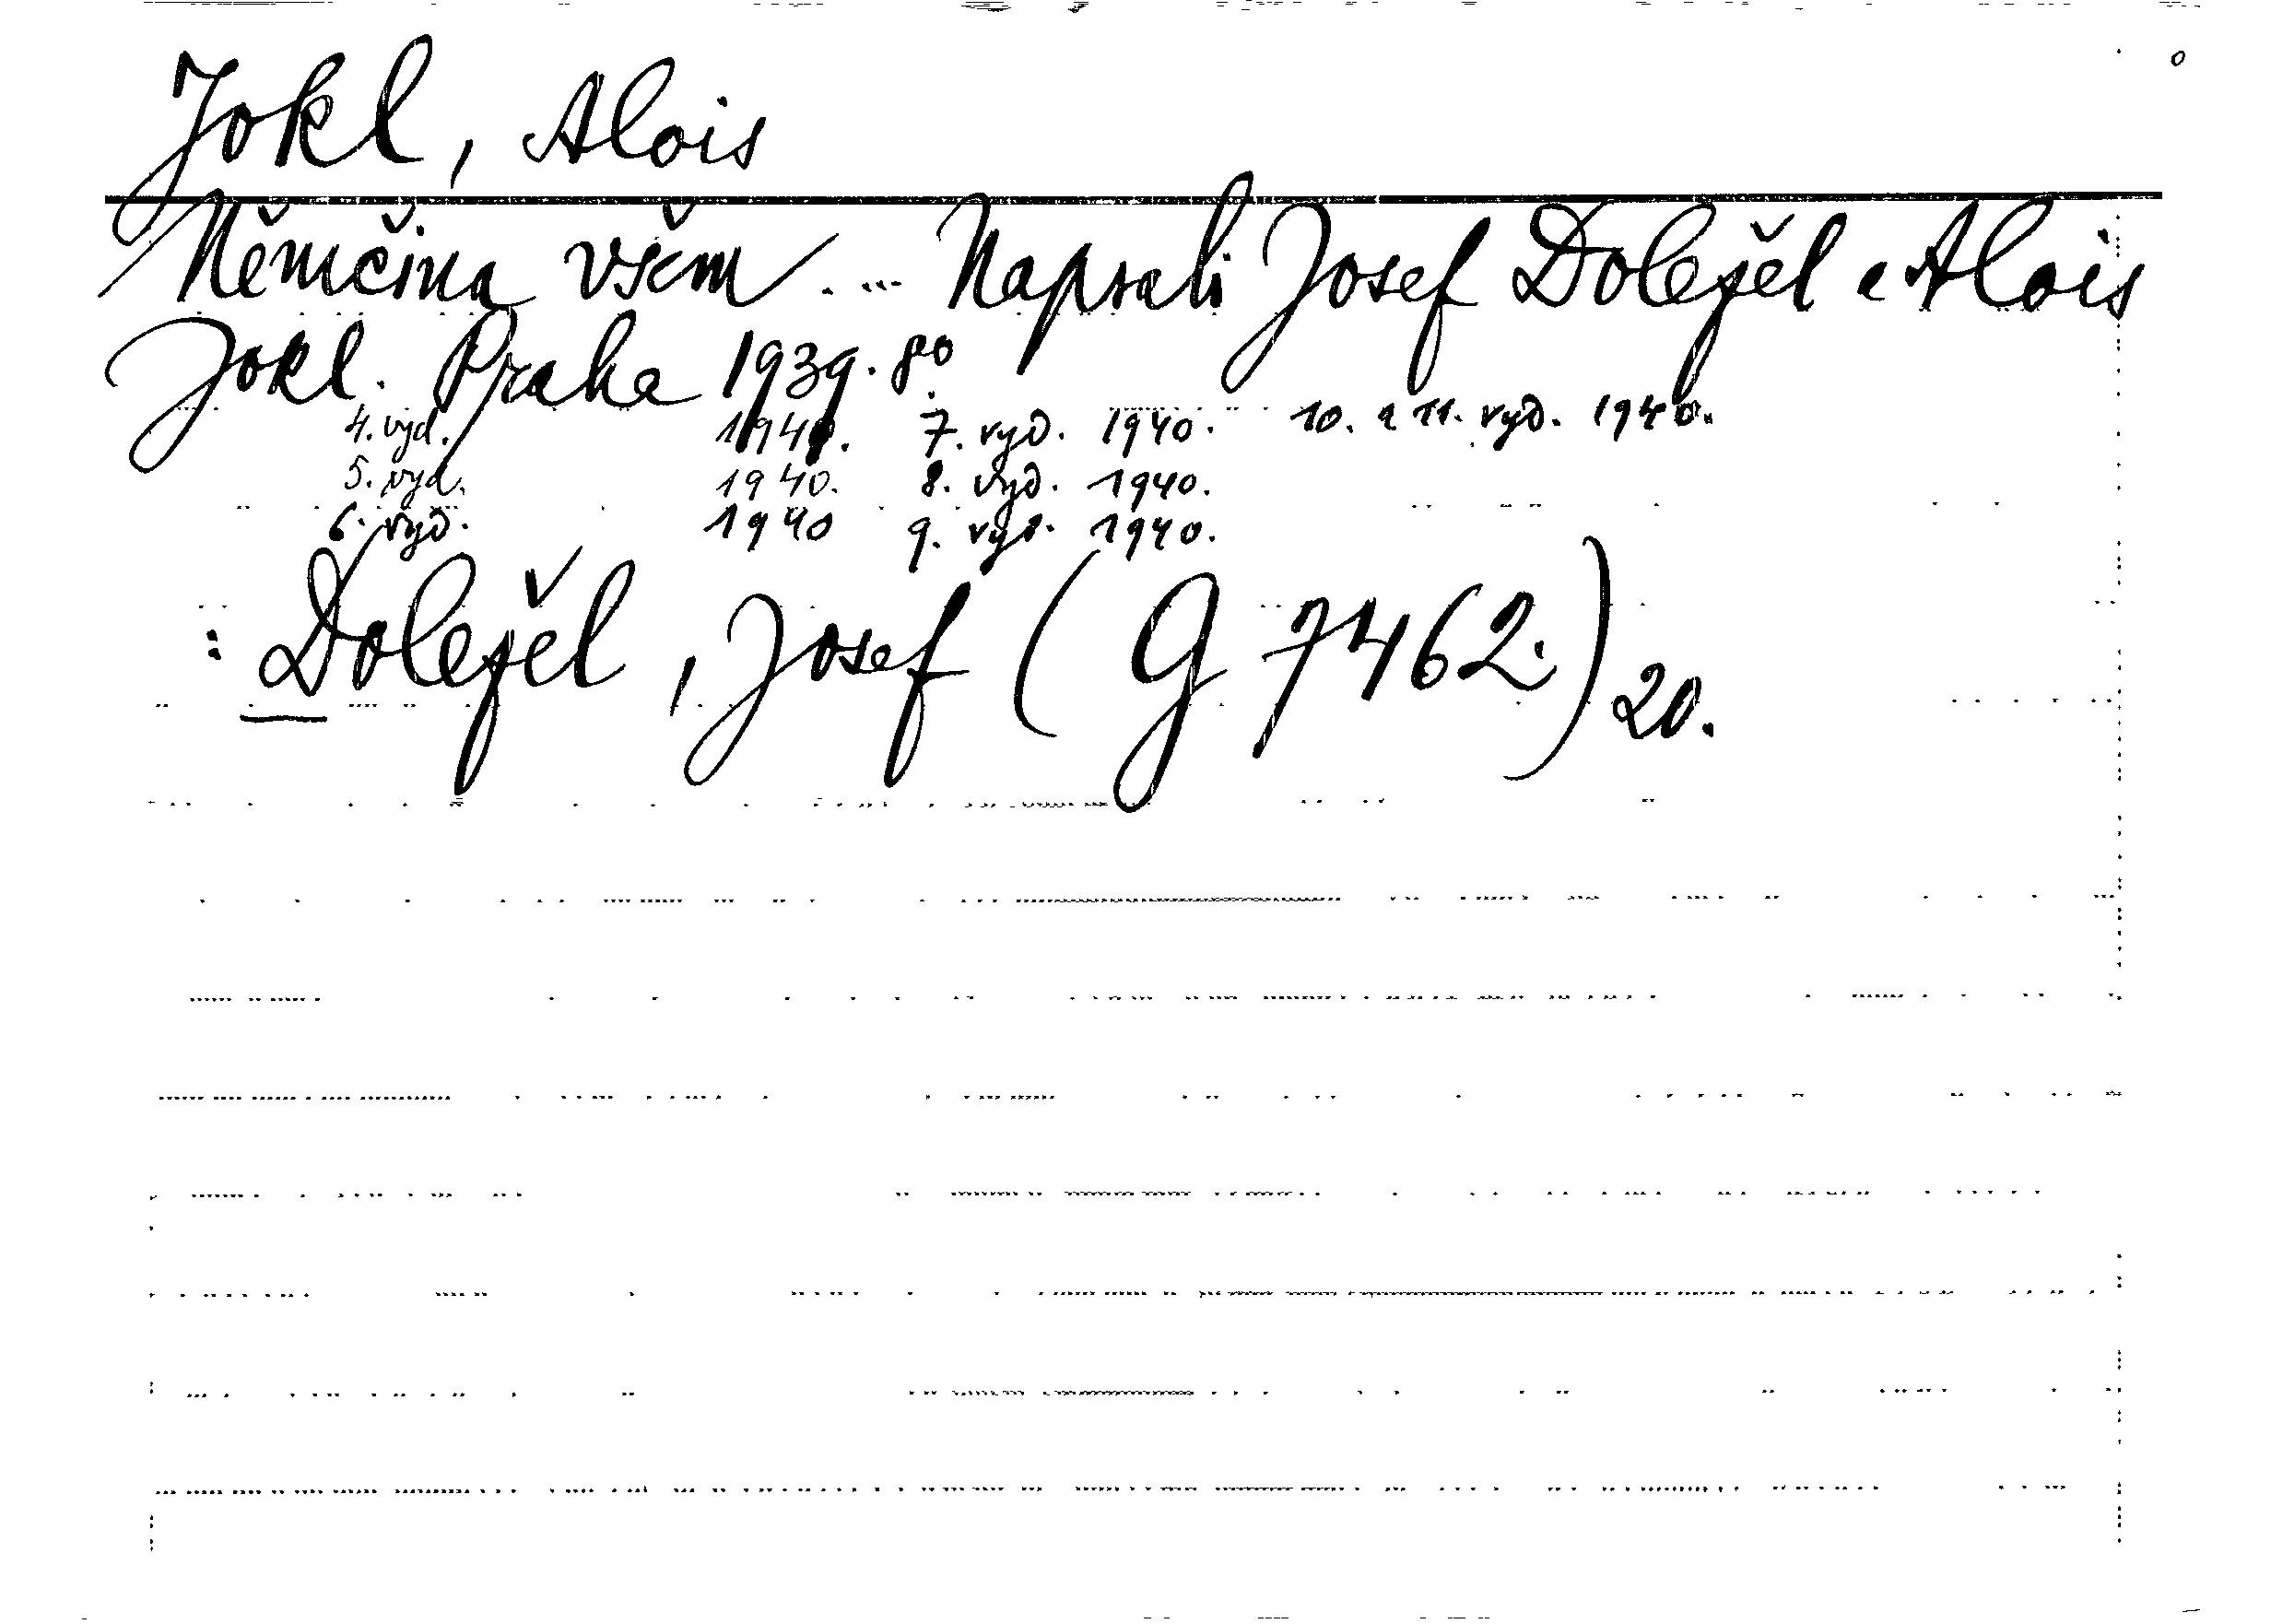 Jokl, Alois
Němčina všem .... Napsali Josef Doležel a Alois
Jokl. Praha 1939. 8º
4. vyd. 1940. 7. vyd. 1940. 10. a 11. vyd. 1940.
5. vyd. 1940. 8. vyd. 1940.
6. vyd. 1940 9. vyd. 1940.
: Doležel, Josef (G 7462.) 20.